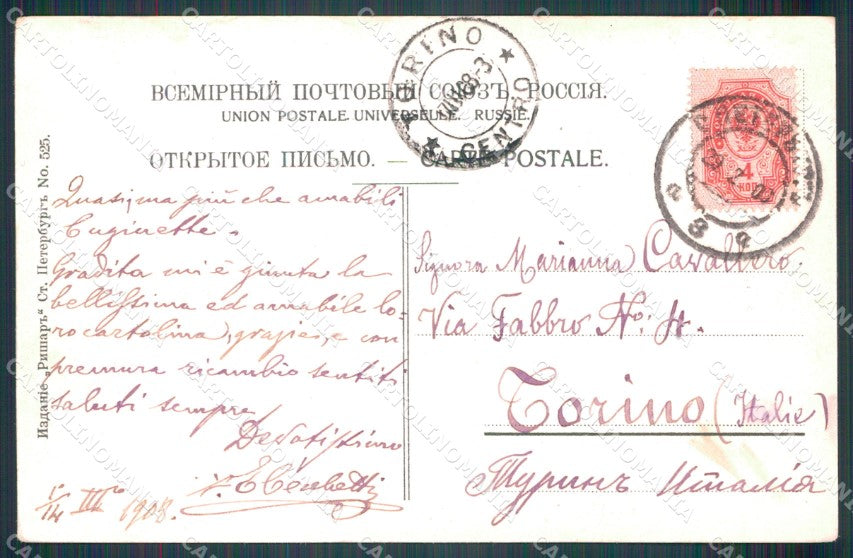 ВСЕМІРНЫЙ ПОЧТОВЫЙ СОЮЗЪ. РОССІЯ.
UNION POSTALE UNIVERSELLE. RUSSIE.
ОТКРЫТОЕ ПИСЬМО. — CARTE POSTALE.
TORINO
CENTRO
4
КОП
Изданіе „Ришаръ“ Ст. Петербургъ No. 525.
Quasi,ma più che amabili
Cuginette.
Gradita mi è giunta la
bellissima ed amabile lo-
ro cartolina, grazie, e con
premura ricambio sentiti
saluti sempre
Devotissimo
1908.
Signora Marianna Cavallero
Via Fabbro No: 4.
Torino (Italie)
Туринъ Италія
CARTOLINOMANIA